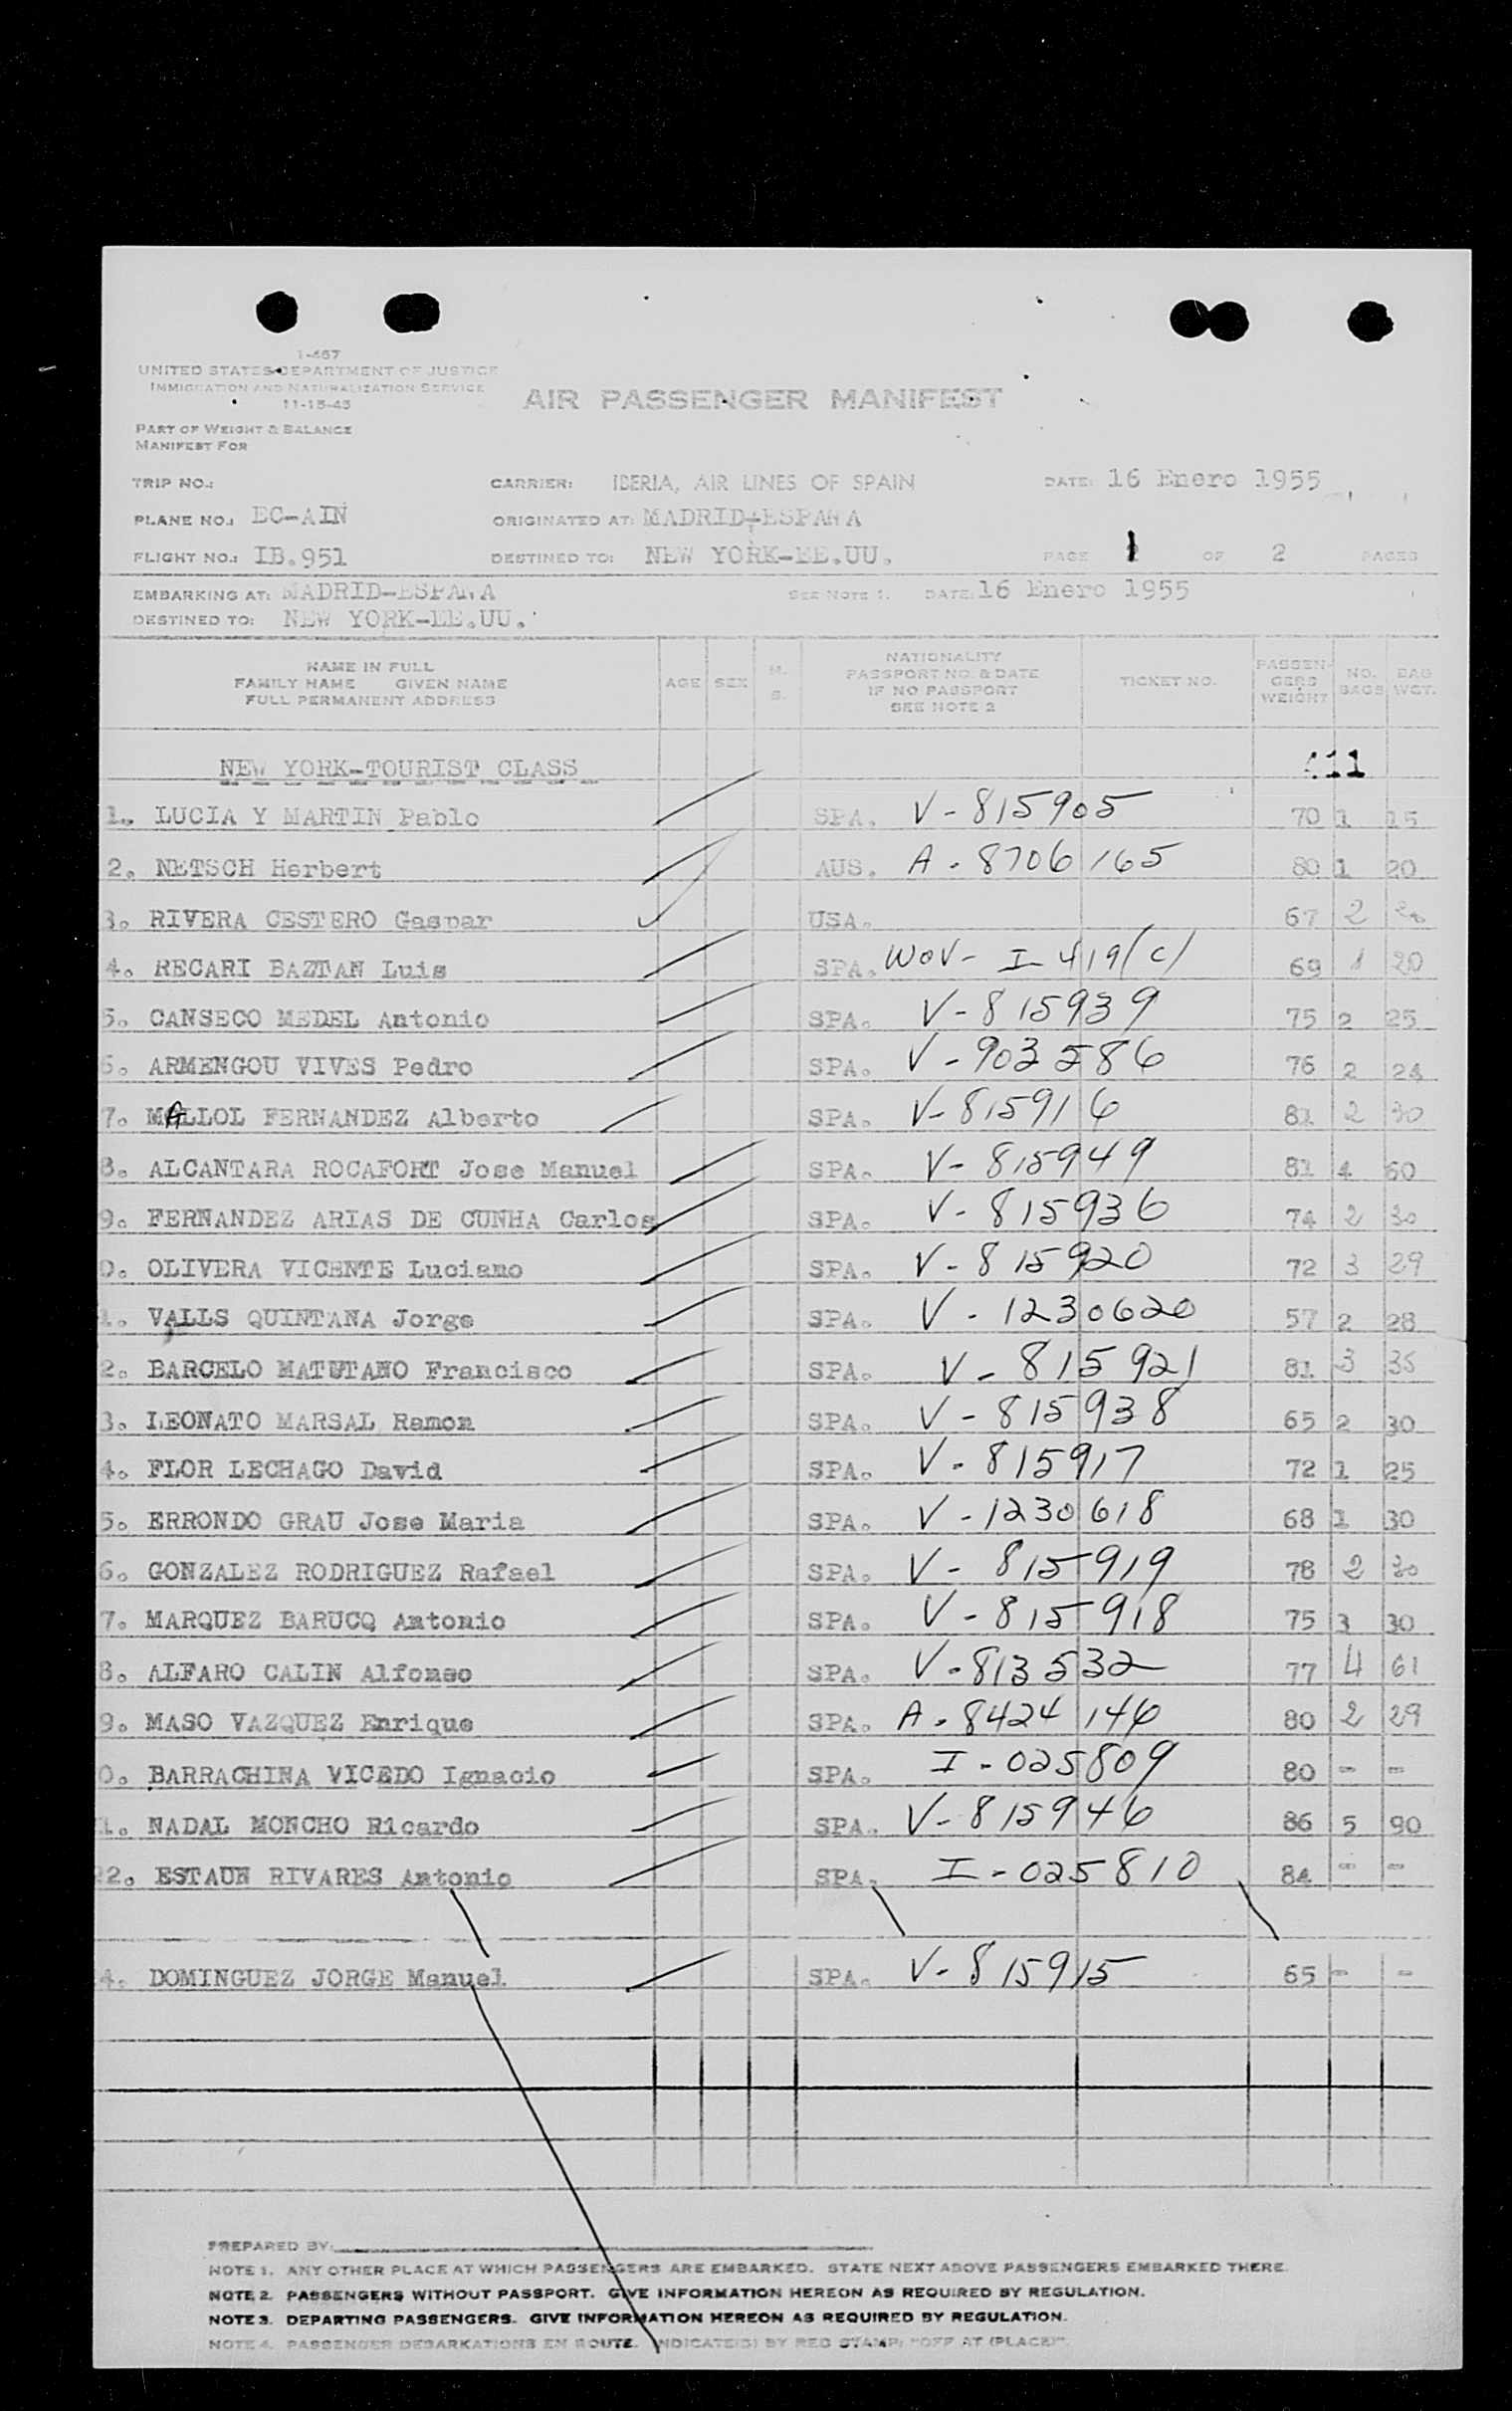 1-467
UNITED STATES DEPARTMENT OF JUSTICE
IMMIGRATION AND NATURALIZATION SERVICE
11-15-45
AIR PASSENGER MANIFEST
PART OF WEIGHT & BALANCE
MANIFEST FOR
TRIP NO.: CARRIER: IBERIA, AIR LINES OF SPAIN DATE: 16 Enero 1955
PLANE NO.: EC-AIN ORIGINATED AT: MADRID-ESPAÑA
FLIGHT NO.: IB.951 DESTINED TO: NEW YORK-EE.UU. PAGE 1 OF 2 PAGES
EMBARKING AT: MADRID-ESPAÑA SEE NOTE 1. DATE: 16 Enero 1955
DESTINED TO: NEW YORK-EE.UU.
NAME IN FULL
FAMILY NAME GIVEN NAME
FULL PERMANENT ADDRESS
AGE SEX M. S.
NATIONALITY
PASSPORT NO. & DATE
IF NO PASSPORT
SEE NOTE 2
TICKET NO.
PASSEN-
GERS
WEIGHT
NO.
BAGS
BAG
WGT.
NEW YORK-TOURIST CLASS 411
1. LUCIA Y MARTIN Pablo SPA. V-815905 70 1 15
2. NETSCH Herbert AUS. A-8706165 80 1 20
3. RIVERA CESTERO Gaspar USA. 67 2
4. RECARI BAZTAN Luis SPA. WOV-I-419(c) 69 1 20
5. CANSECO MEDEL Antonio SPA. V-815939 75 2 25
6. ARMENGOU VIVES Pedro SPA. V-903586 76 2 24
7. MALLOL FERNANDEZ Alberto SPA. V-815916 81 2 30
8. ALCANTARA ROCAFORT Jose Manuel SPA. V-815949 81 4 60
9. FERNANDEZ ARIAS DE CUNHA Carlos SPA. V-815936 74 2 30
0. OLIVERA VICENTE Luciano SPA. V-815920 72 3 29
1. VALLS QUINTANA Jorge SPA. V-1230620 57 2 28
2. BARCELO MATUTANO Francisco SPA. V-815921 81 3 35
3. LEONATO MARSAL Ramon SPA. V-815938 65 2 30
4. FLOR LECHAGO David SPA. V-815917 72 1 25
5. ERRONDO GRAU Jose Maria SPA. V-1230618 68 1 30
6. GONZALEZ RODRIGUEZ Rafael SPA. V-815919 78 2 30
7. MARQUEZ BARUCQ Antonio SPA. V-815918 75 3 30
8. ALFARO CALIN Alfonso SPA. V-813532 77 4 61
9. MASO VAZQUEZ Enrique SPA. A-8424146 80 2 29
0. BARRACHINA VICEDO Ignacio SPA. I-025809 80 - -
1. NADAL MONCHO Ricardo SPA. V-815946 86 5 90
22. ESTAUN RIVARES Antonio SPA. I-025810 84 - -
4. DOMINGUEZ JORGE Manuel SPA. V-815915 65 - -
PREPARED BY:
NOTE 1. ANY OTHER PLACE AT WHICH PASSENGERS ARE EMBARKED. STATE NEXT ABOVE PASSENGERS EMBARKED THERE.
NOTE 2. PASSENGERS WITHOUT PASSPORT. GIVE INFORMATION HEREON AS REQUIRED BY REGULATION.
NOTE 3. DEPARTING PASSENGERS. GIVE INFORMATION HEREON AS REQUIRED BY REGULATION.
NOTE 4. PASSENGER DEBARKATIONS EN ROUTE. INDICATE(S) BY RED STAMP: "OFF AT (PLACE)".